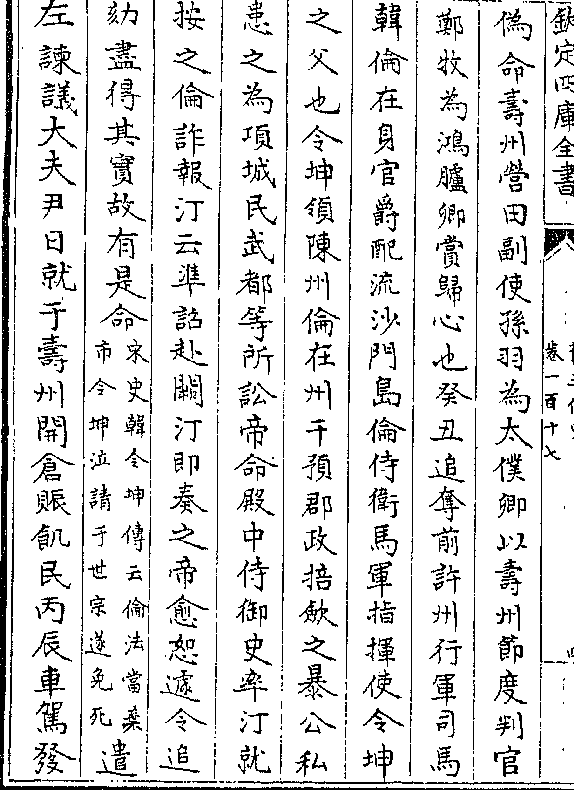 欽定四庫全書
卷一百十七
偽命壽州營田副使孫羽為太僕卿以壽州節度判官
鄭牧為鴻臚卿賞歸心也癸丑追奪前許州行軍司馬
韓倫在身官爵配流沙門島倫侍衛馬軍指揮使令坤
之父也令坤領陳州倫在州干預郡政掊斂之暴公私
患之為項城民武都等所訟帝命殿中侍御史率汀就
按之倫詐報汀云準詔赴闕汀即奏之帝愈怒遽令追
劾盡得其實故有是命宋史韓令坤傳云倫法當棄市令坤泣請于世宗遂免死遣
左諫議大夫尹日就于壽州開倉賑飢民丙辰車駕發